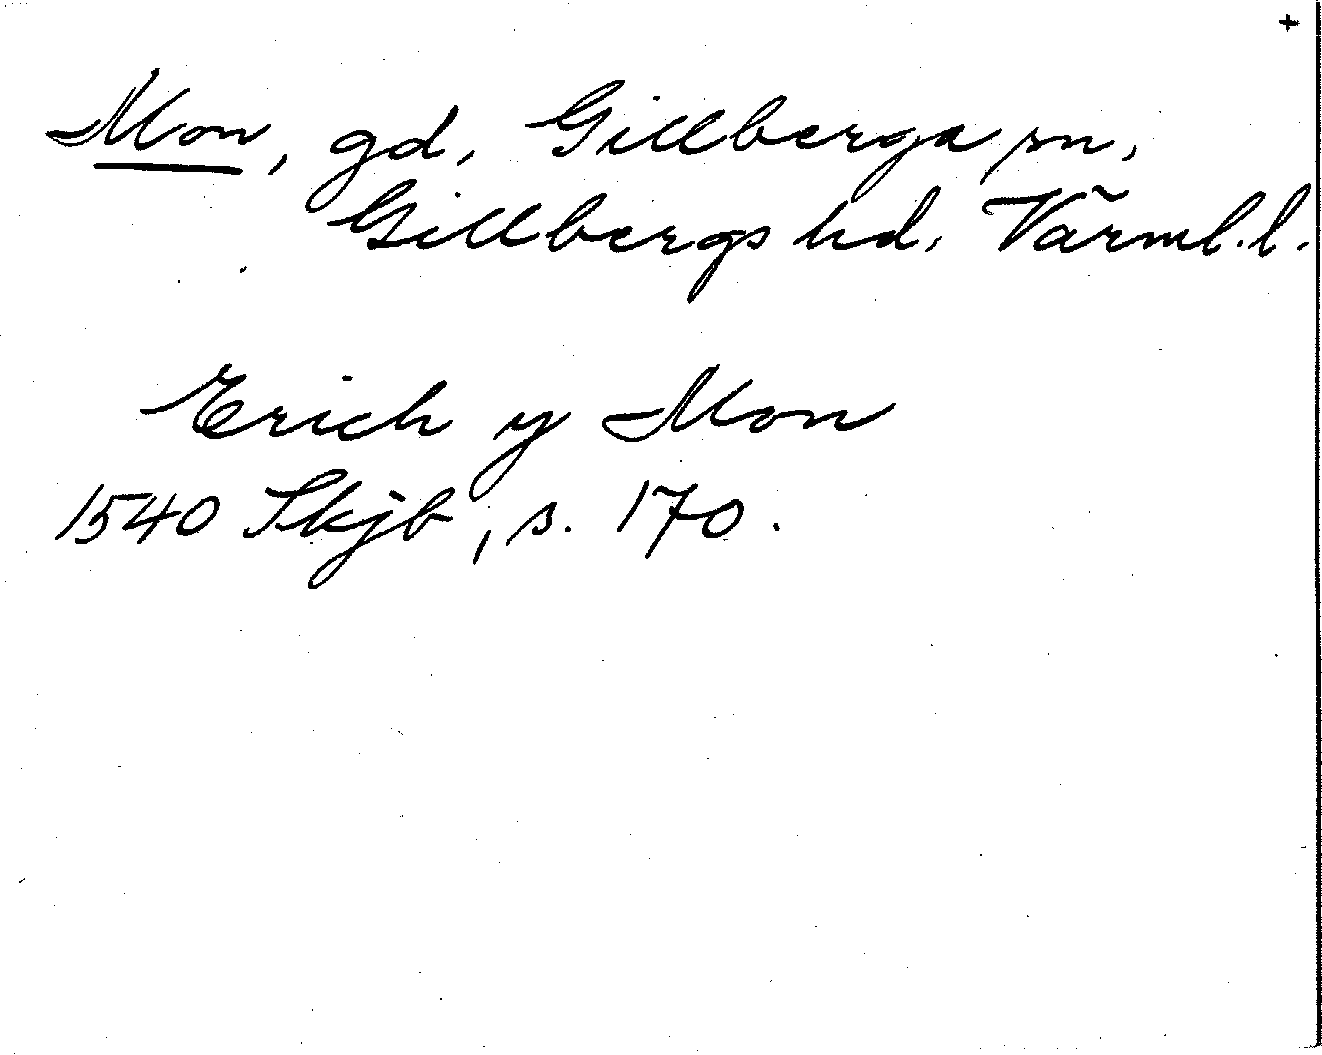 +
Mon, gd, Gillberga sn,
Gillbergs hd, Värml.l.
Erich y Mon
1540 Skjb, s. 170.